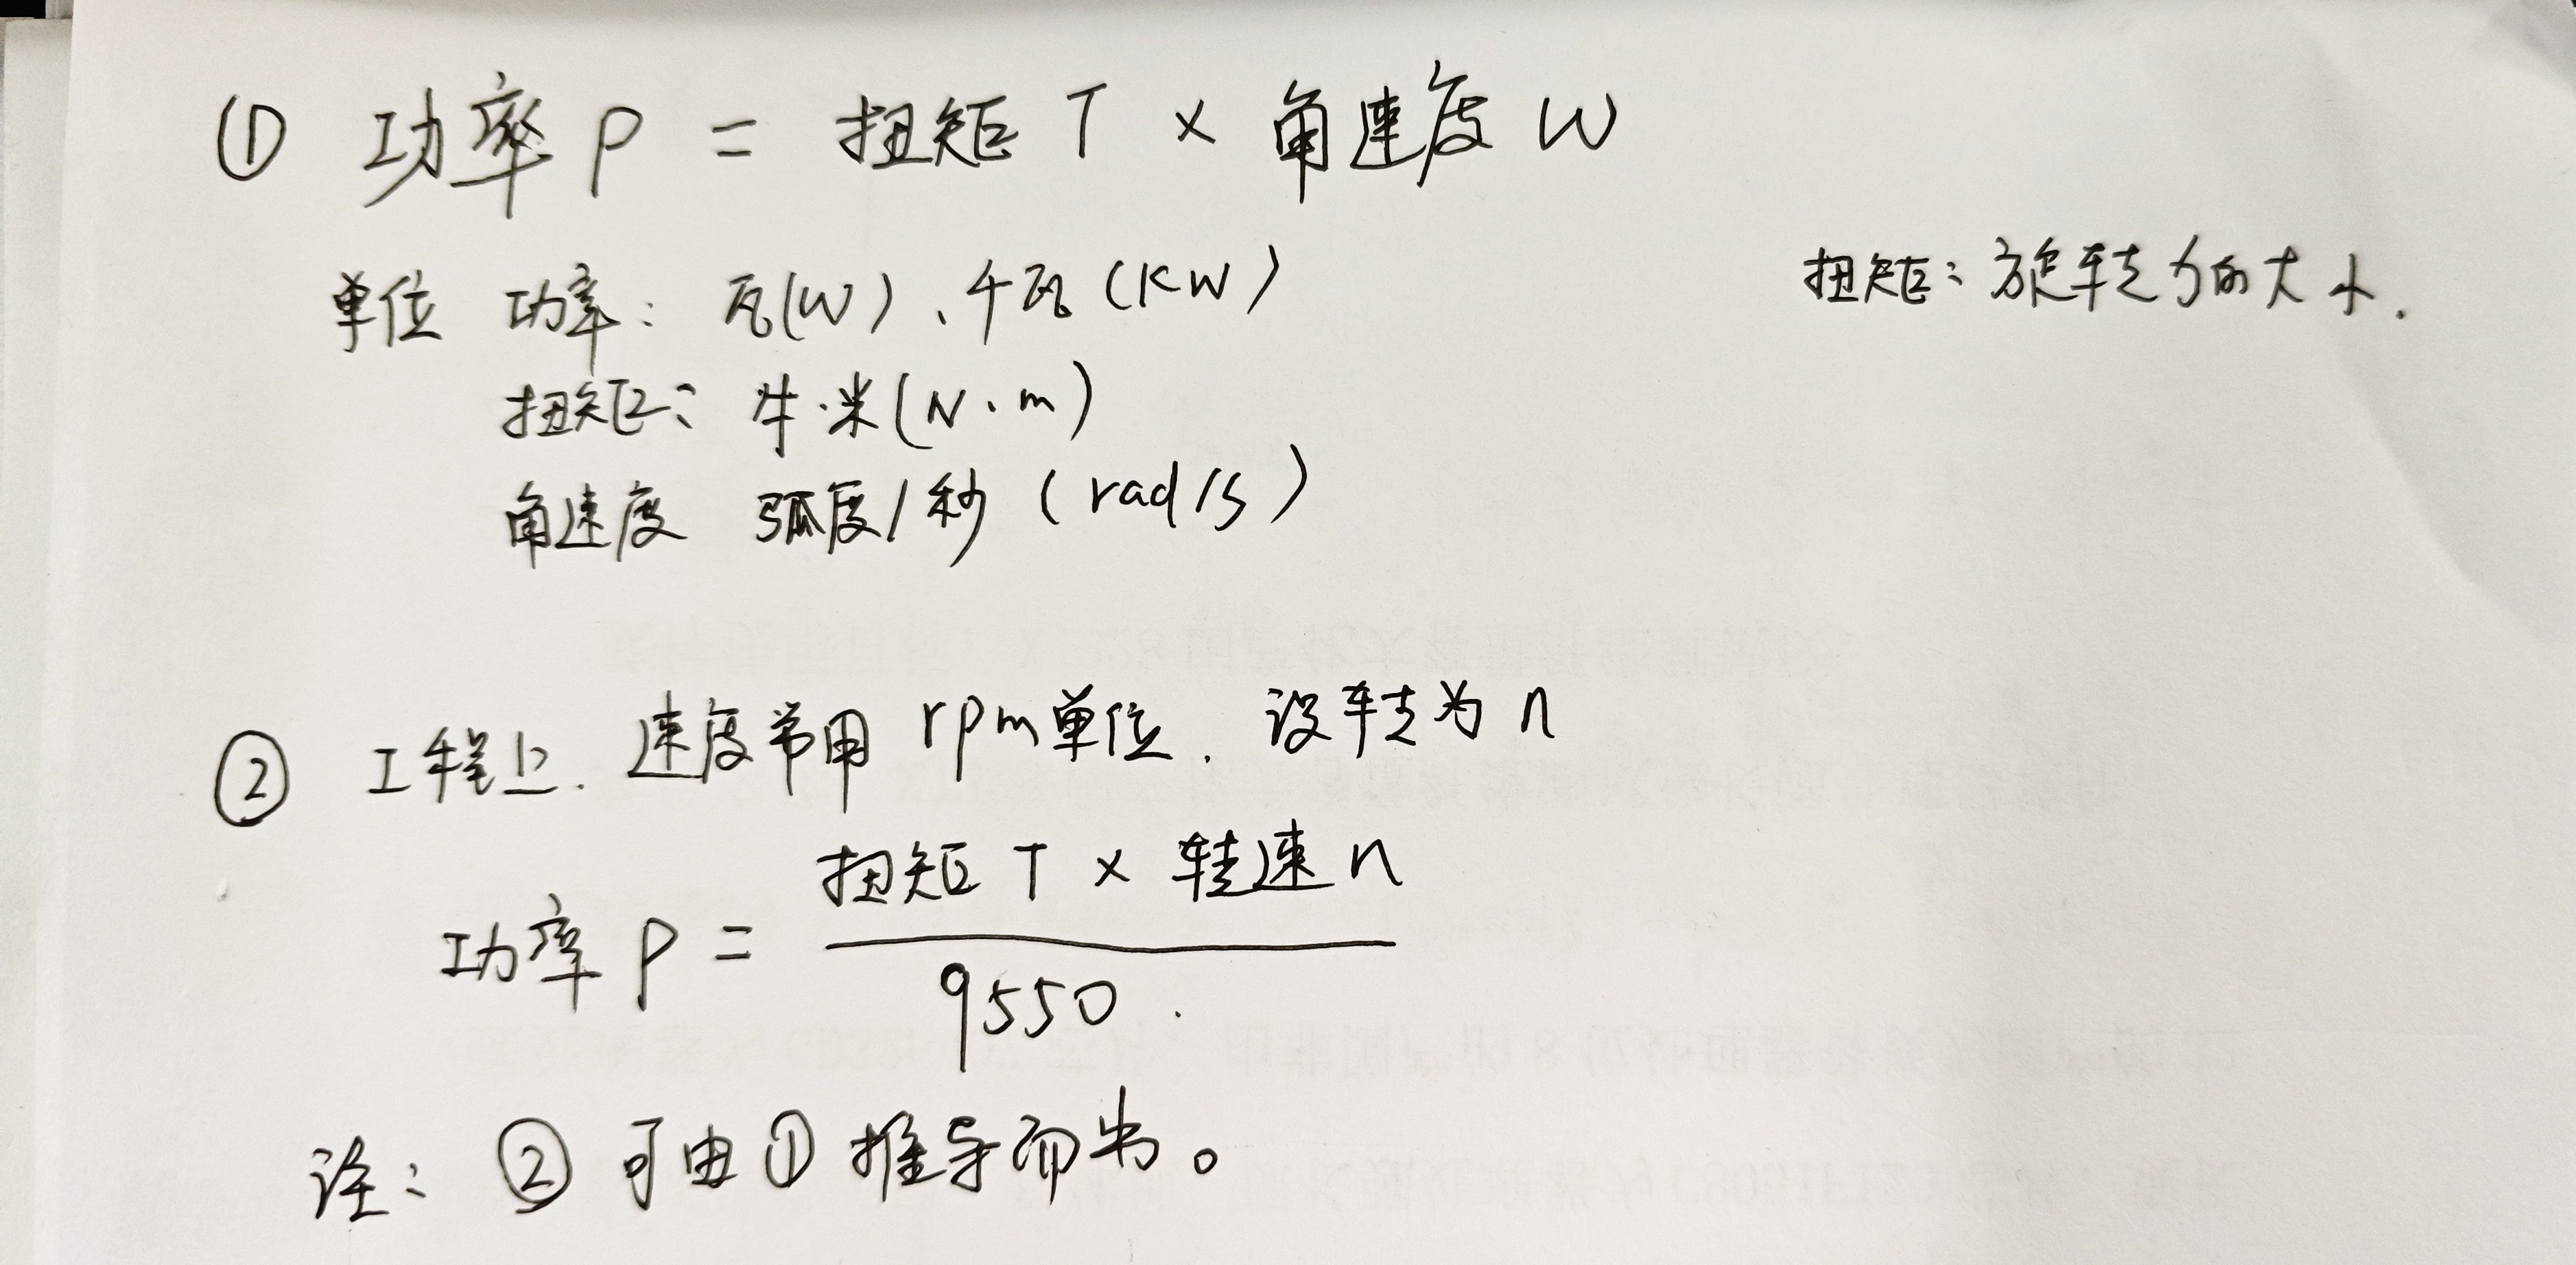 ① 功率 P = 扭矩 T × 角速度 W
单位 功率: 瓦(W)、千瓦(KW)
扭矩: 旋转力的大小.
扭矩: 牛·米(N·m)
角速度 弧度/秒 (rad/s)
② 工程上. 速度常用 rpm单位. 设转为 n
扭矩 T × 转速 n
功率 P =
9550.
注: ② 可由①推导而出。